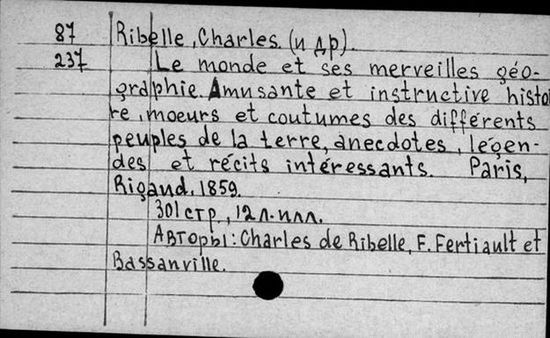 87 Ribelle, Charles. (и др).
237 Le monde et ses merveilles géo-
graphie. Amusante et instructive histoi
re, moeurs et coutumes des différents
peuples de la terre, anecdotes, légen-
des et récits intéressants. Paris,
Rigaud, 1859.
301 стр., 12 л. илл.
Авторы: Charles de Ribelle, F. Fertiault et
Bassanville.